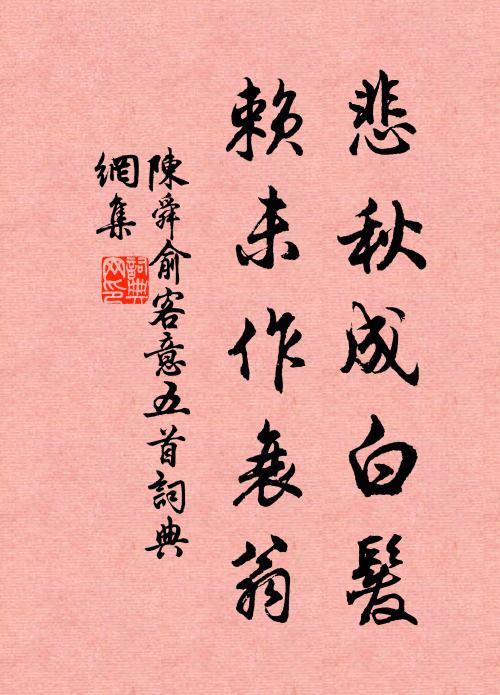 悲秋成白髮
賴未作衰翁
陳舜俞客意五首詞典
網集
詞典
网印